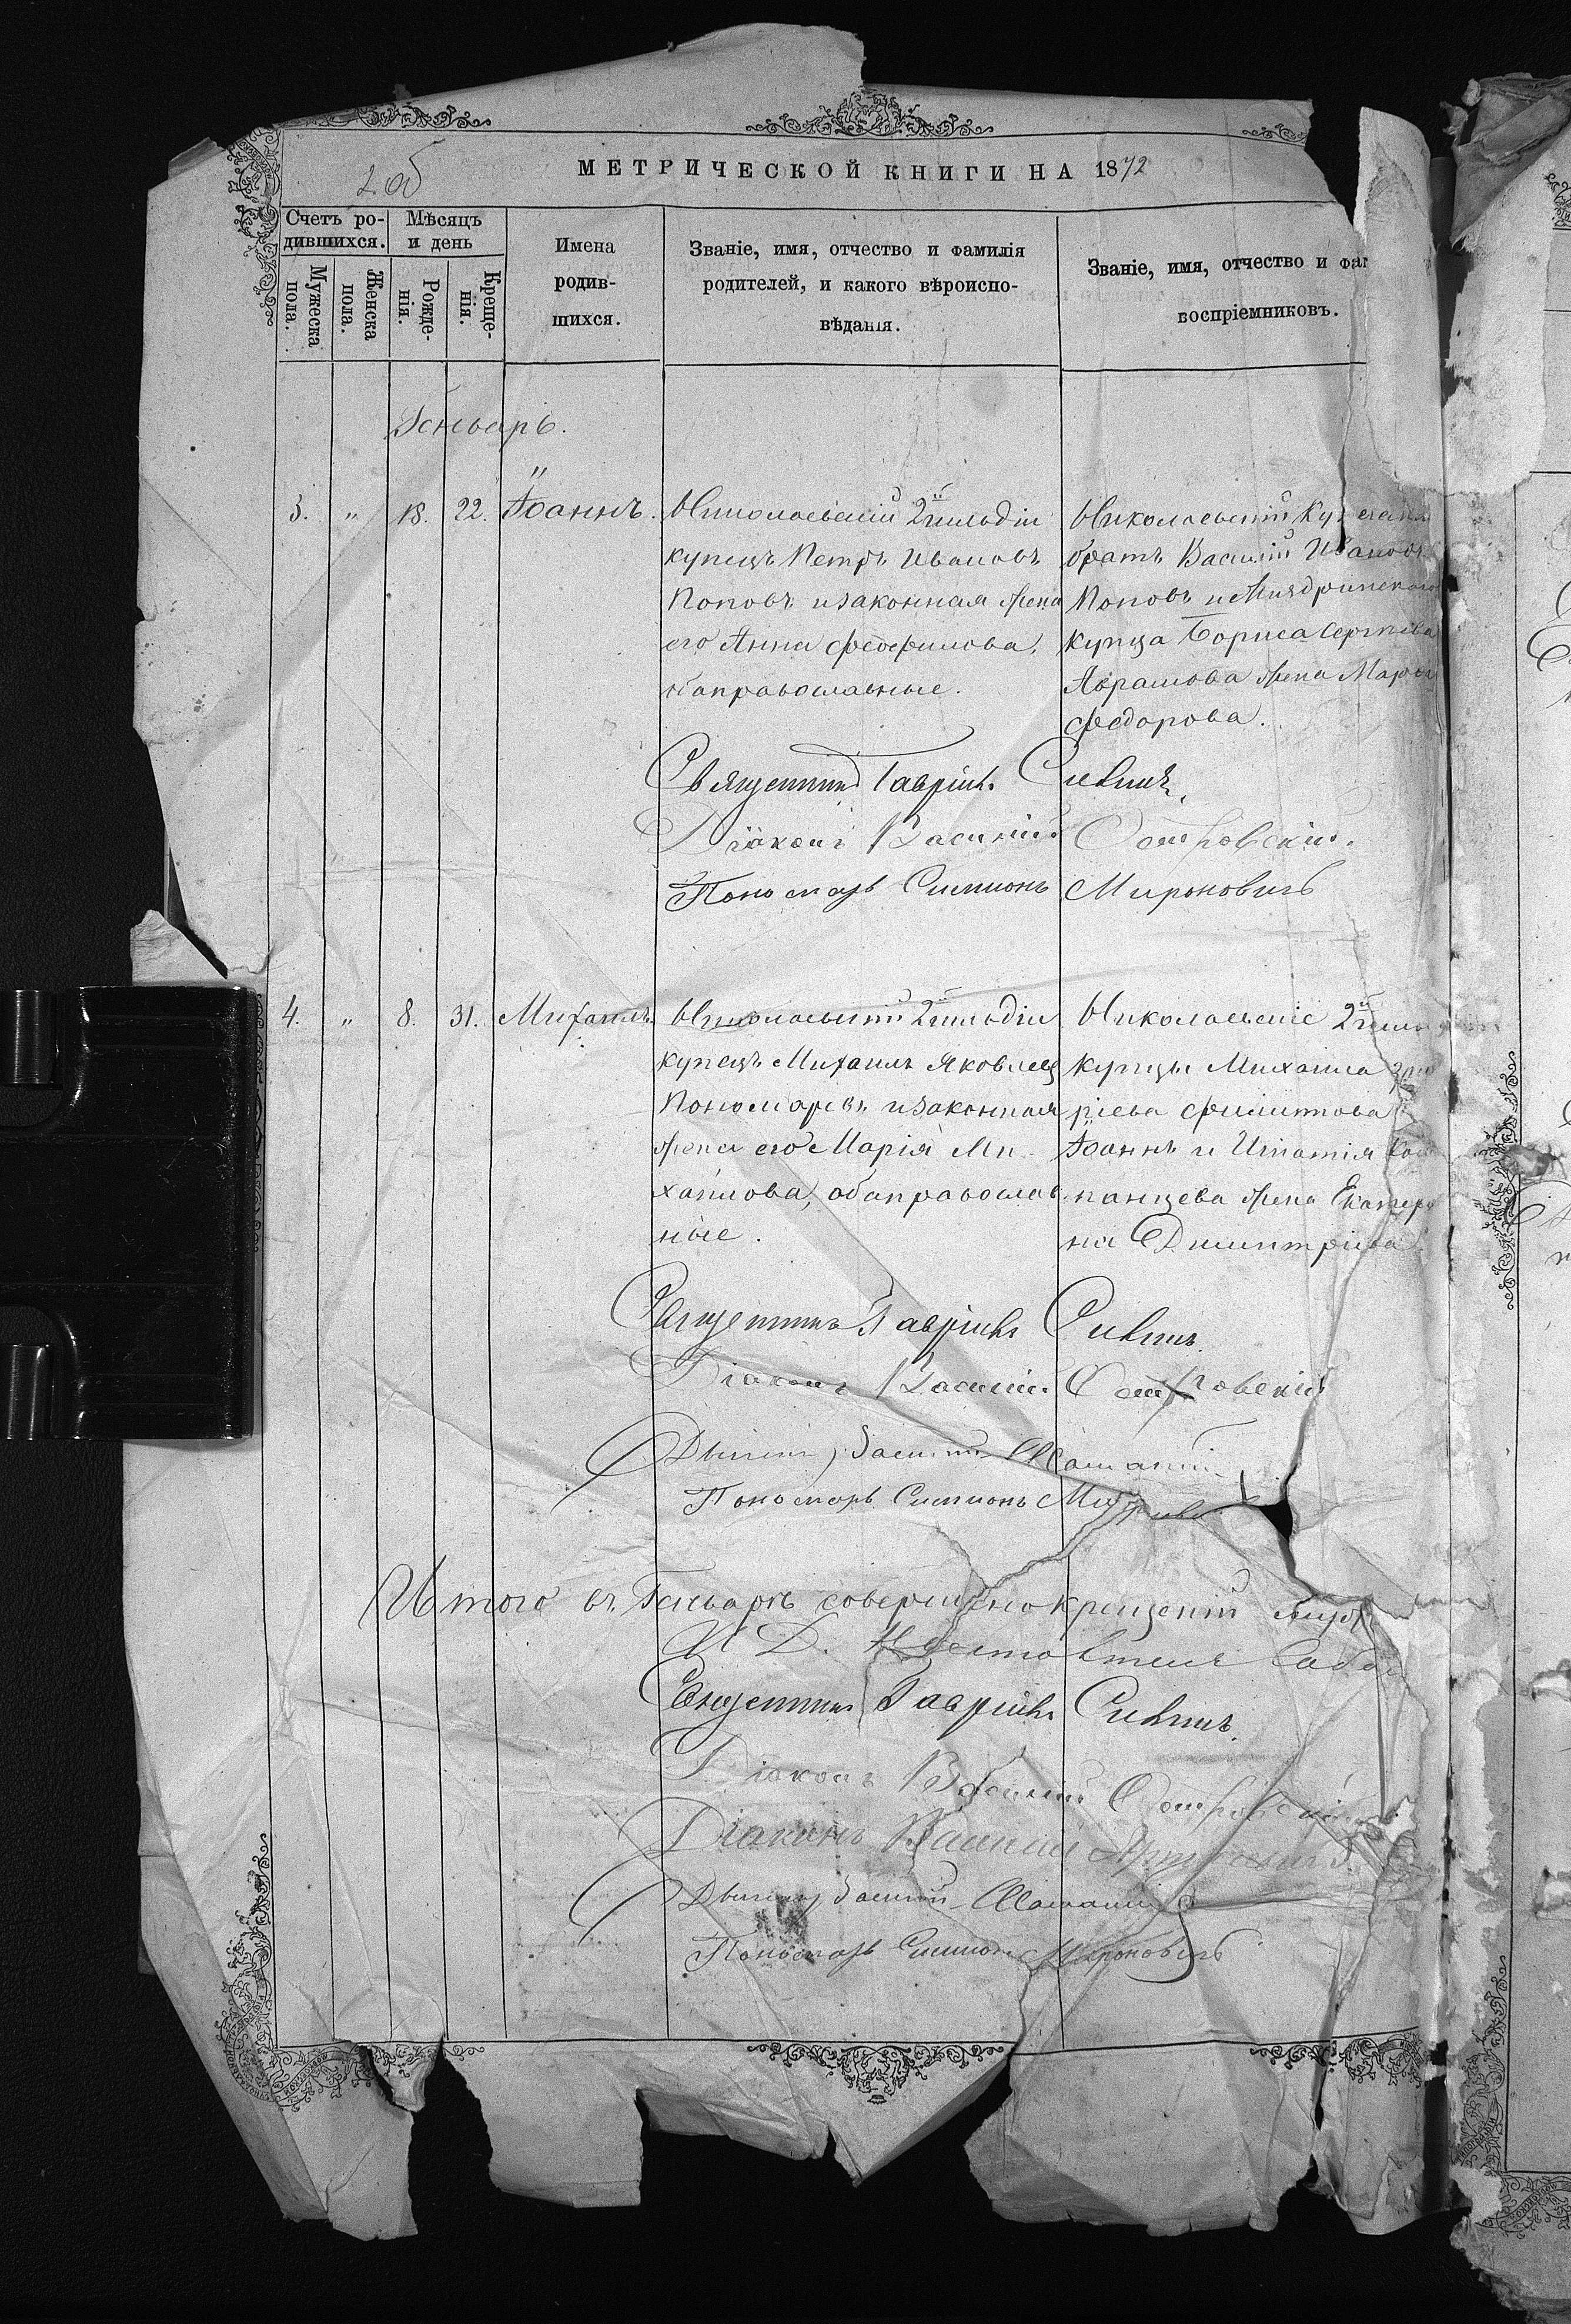 2 об
МЕТРИЧЕСКОЙ КНИГИ НА 1872
Счетъ ро-
дившихся.
Мѣсяцъ
и день
Мужеска
пола.
Женска
пола.
Рожде-
нія.
Креще-
нія.
Имена
родив-
шихся.
Званіе, имя, отчество и фамилія
родителей, и какого вѣроиспо-
вѣданія.
Званіе, имя, отчество и фам
воспріемниковъ.
Генварь.
3. " 18. 22. Іоаннъ.
Николаевскій 2й гильдіи
купецъ Петръ Ивановъ
Поповъ и законная жена
его Анна Феофилова,
оба православные.
Николаевскій
братъ Василій Ивановъ
Поповъ и
купца Бориса Сергѣева
Аврамова жена
Федорова.
Священникъ Гавріилъ Сивилъ.
Діаконъ Василій Островскій.
Пономарь Симеонъ Мироновичъ
4. " 8. 31. Михаилъ.
Николаевскій 2й гильдіи
купецъ Михаилъ Яковлевъ
Пономаревъ и законная
жена его Марія Ми-
хайлова, оба православ-
ные.
Николаевскіе 2й
купцы Михаила
Филиппова
Іоаннъ и Игнатія
жена Екатери
на Димитріева
Священникъ Гавріилъ Сивилъ.
Діаконъ Василій Островскій
Василій
Пономарь Симеонъ
Итого въ Генварѣ совершено крещеній
И. Д. Настоятеля
Священникъ Гавріилъ Сивилъ.
Діаконъ Василій Островскій
Діаконъ Василій
Василій
Пономарь Симеонъ Мироновичъ